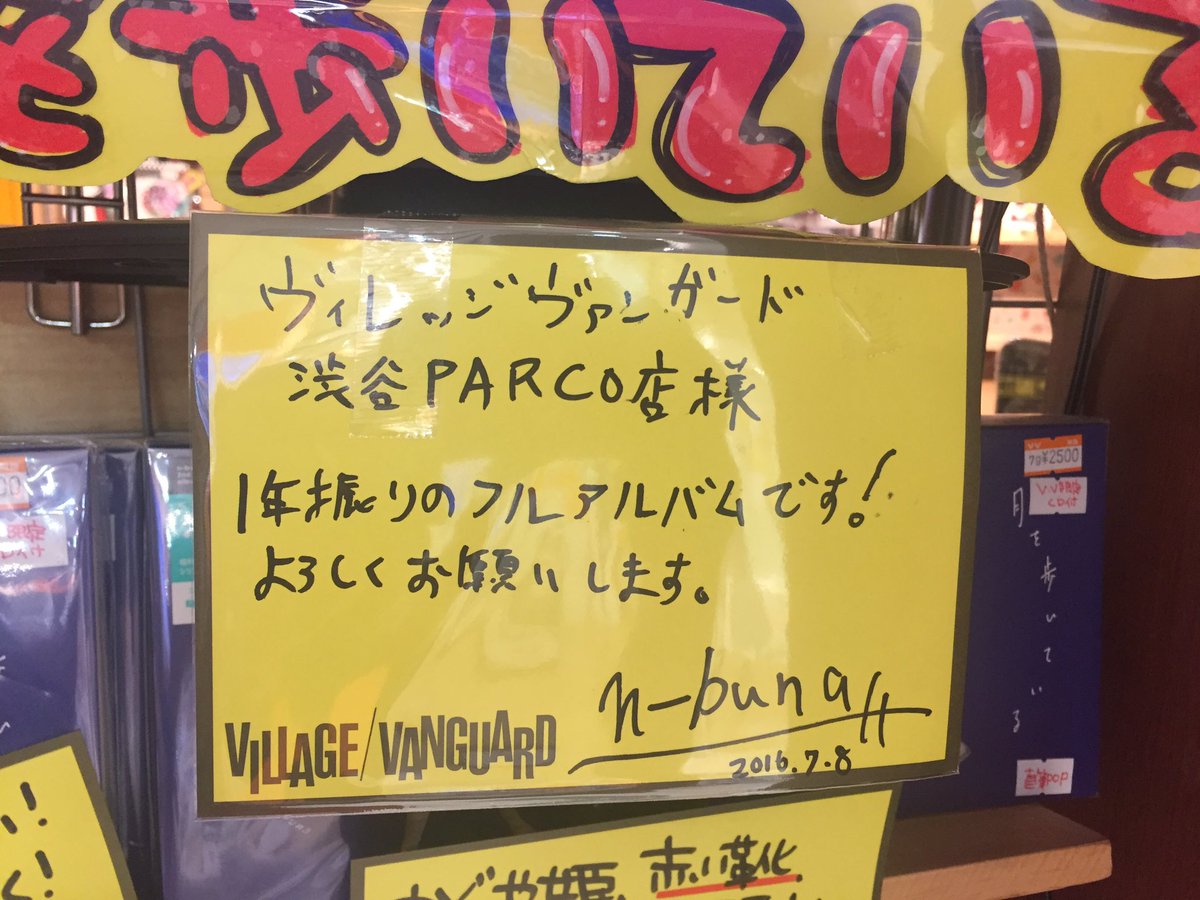 を歩いている
ヴィレッジヴァンガード
渋谷PARCO店様
1年振りのフルアルバムです!
よろしくお願いします。
n-buna
2016.7.8
VILLAGE/VANGUARD
7g¥2500
月を歩いている
直筆pop
赤い革化